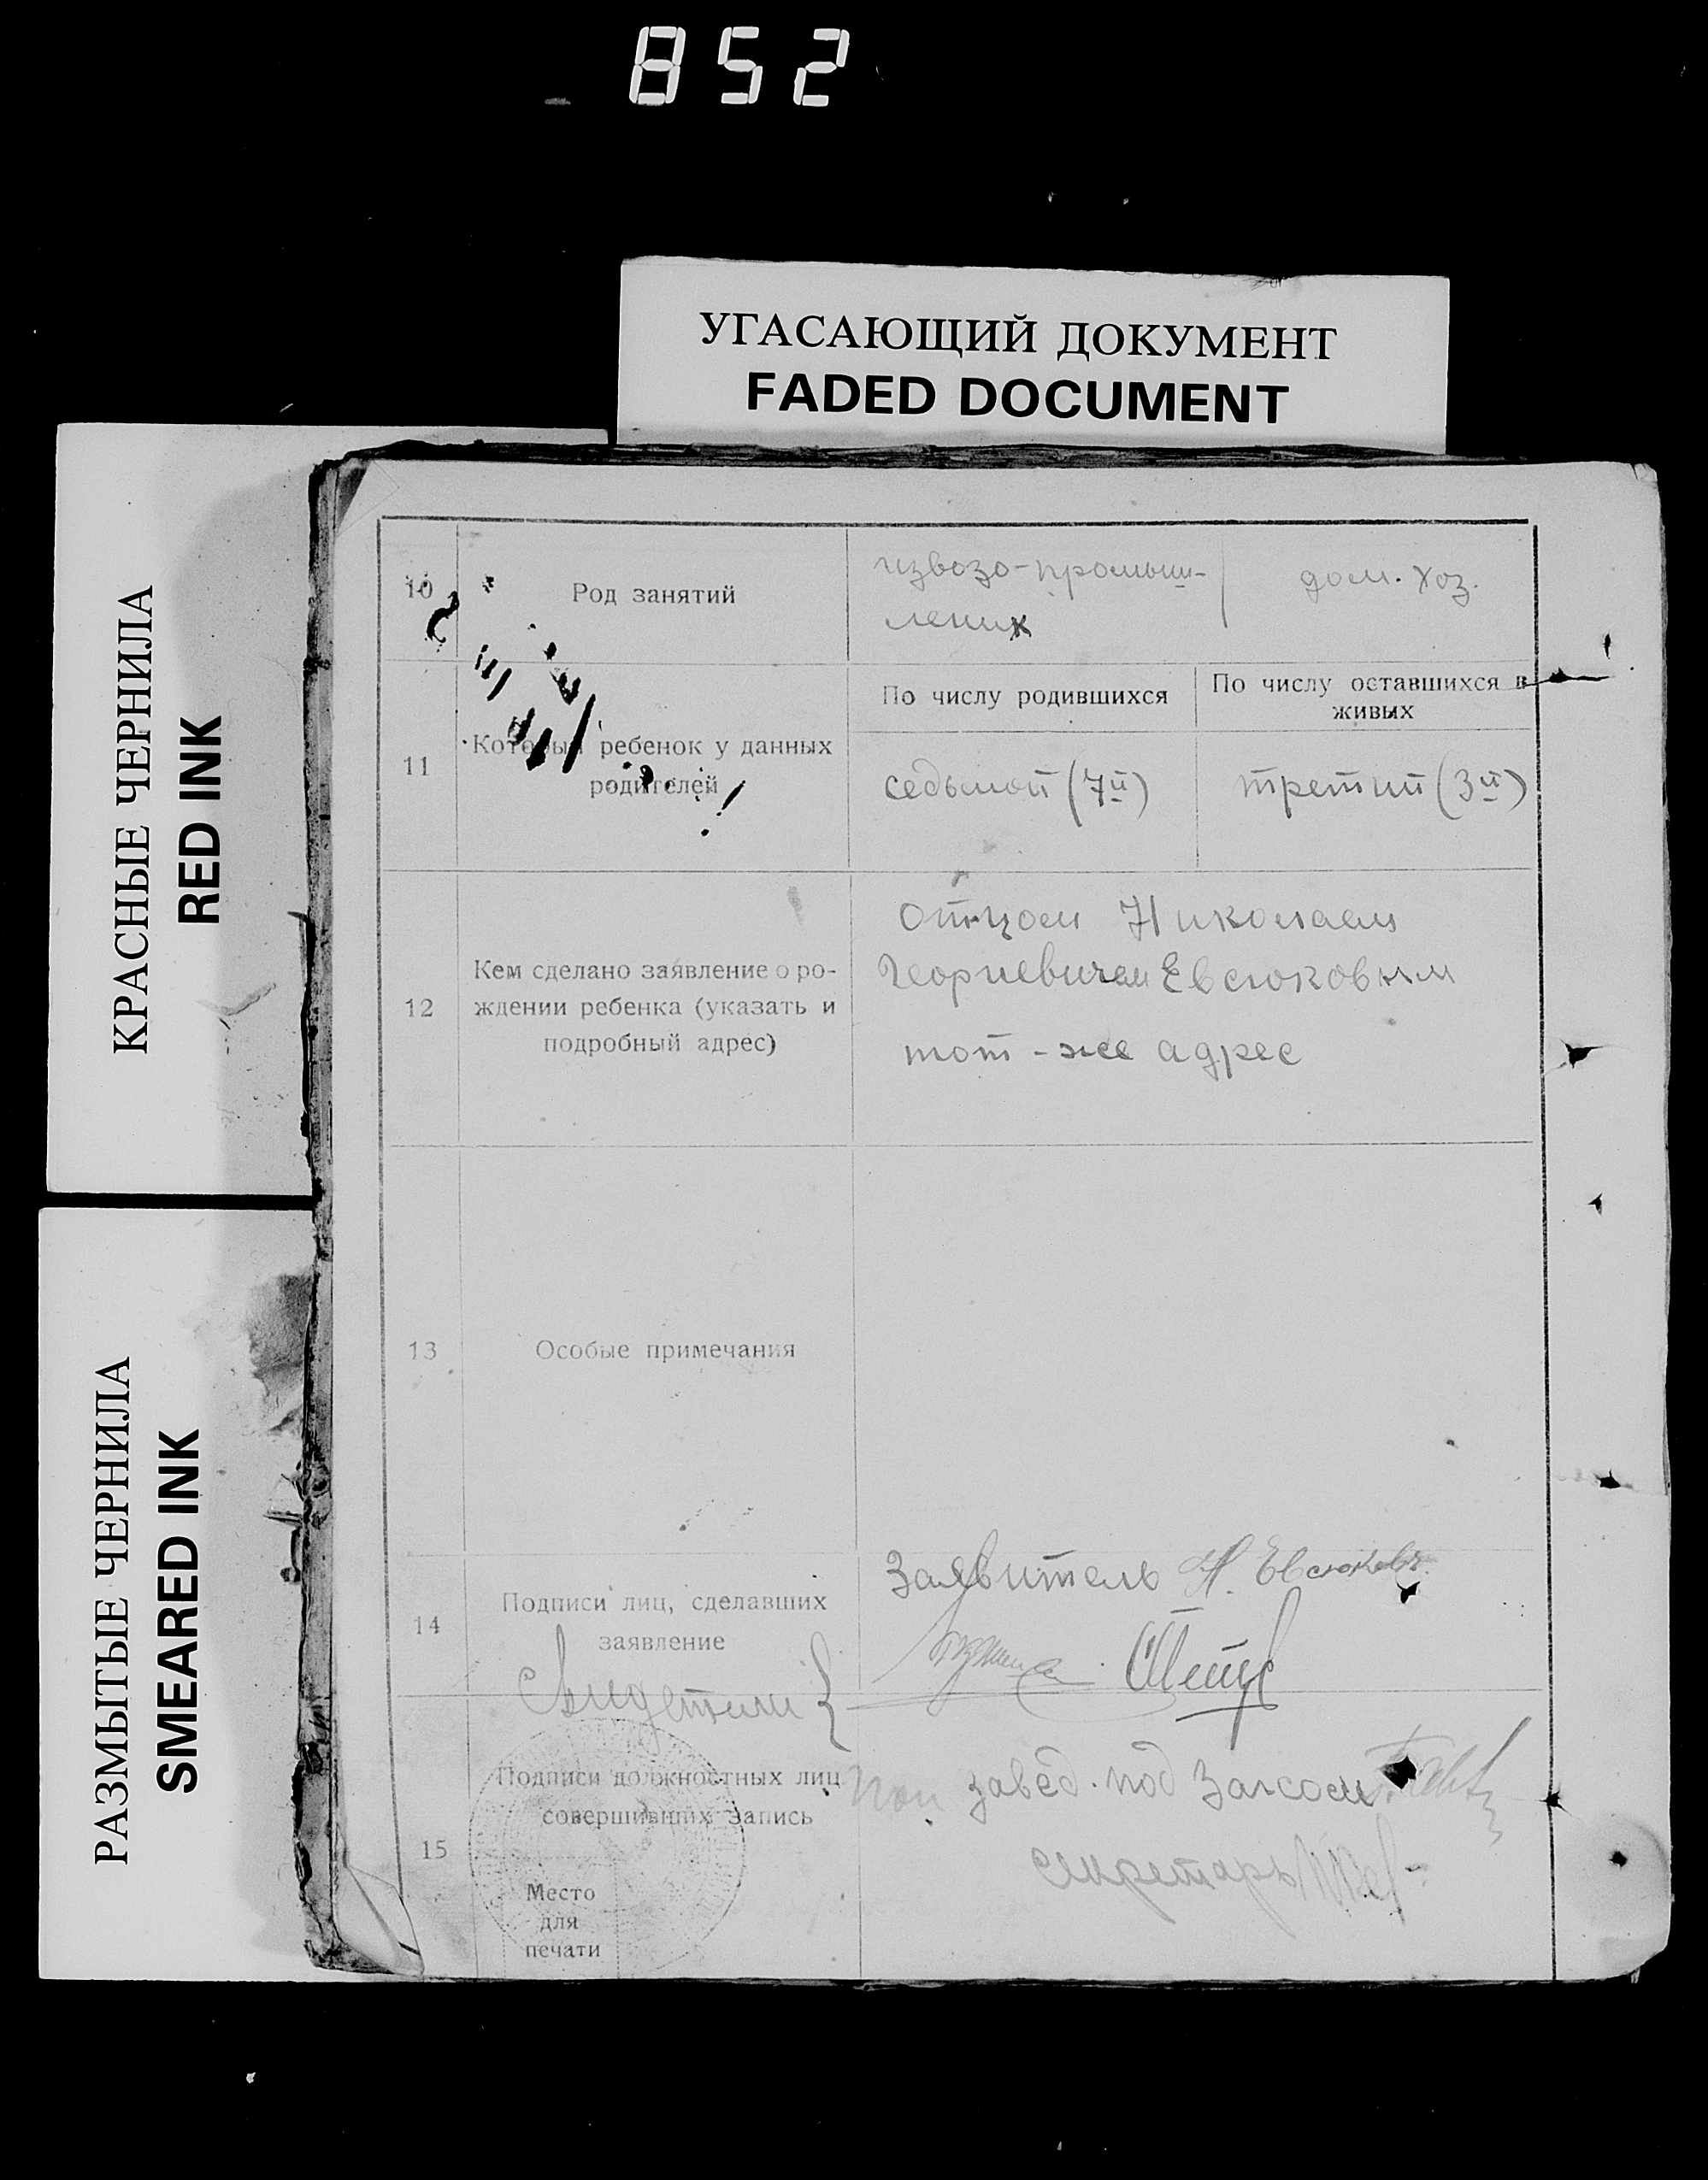 852
УГАСАЮЩИЙ ДОКУМЕНТ
FADED DOCUMENT
КРАСНЫЕ ЧЕРНИЛА
RED INK
РАЗМЫТЫЕ ЧЕРНИЛА
SMEARED INK
10
Род занятий
извозо-промыш-
леник
дом. хоз.
11
Который ребенок у данных
родителей
По числу родившихся
седьмой (7й)
По числу оставшихся в
живых
третий (3й)
12
Кем сделано заявление о ро-
ждении ребенка (указать и
подробный адрес)
отцом Николаем
Георгиевичем Евсюковым
тот-же адрес
13
Особые примечания
14
Подписи лиц, сделавших
заявление
Свидетели
Заявитель Н. Евсюков
15
Подписи должностных лиц
совершивших запись
Место
для
печати
завед. под Загсом
секретарь